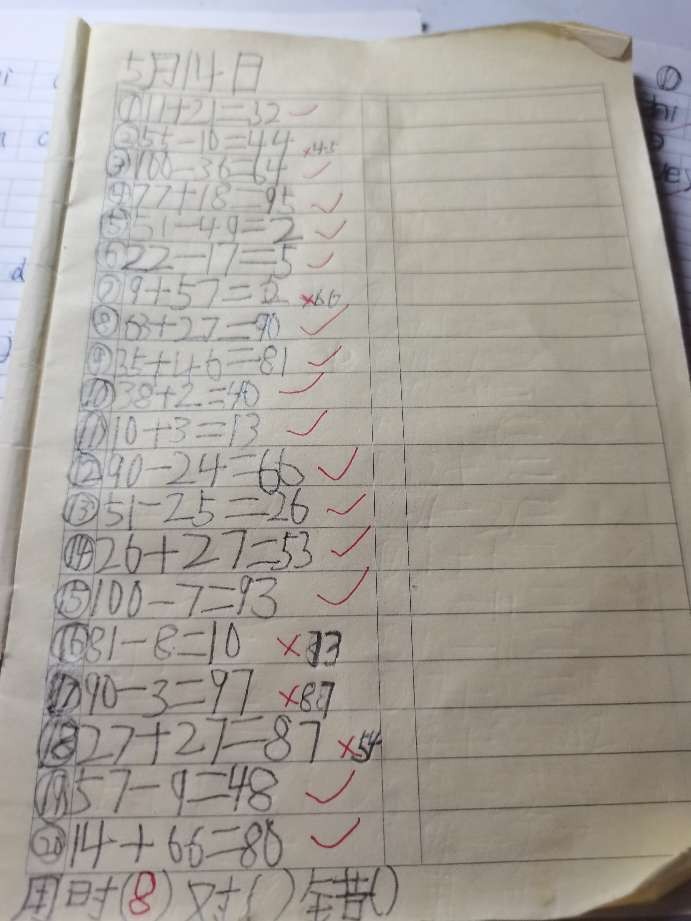 5月14日
①11+21=32 ✓
②55-10=44 ×45
③100-36=64 ✓
④77+18=95 ✓
⑤51-49=2 ✓
⑥22-17=5 ✓
⑦9+57=2 ×66
⑧63+27=90 ✓
⑨35+46=81 ✓
⑩38+2=40 ✓
⑪10+3=13 ✓
⑫90-24=66 ✓
⑬51-25=26 ✓
⑭26+27=53 ✓
⑮100-7=93 ✓
⑯81-8=10 ×73
⑰90-3=97 ×87
⑱27+27=87 ×54
⑲57-9=48 ✓
⑳14+66=80 ✓
用时(8) 对( ) 错( )